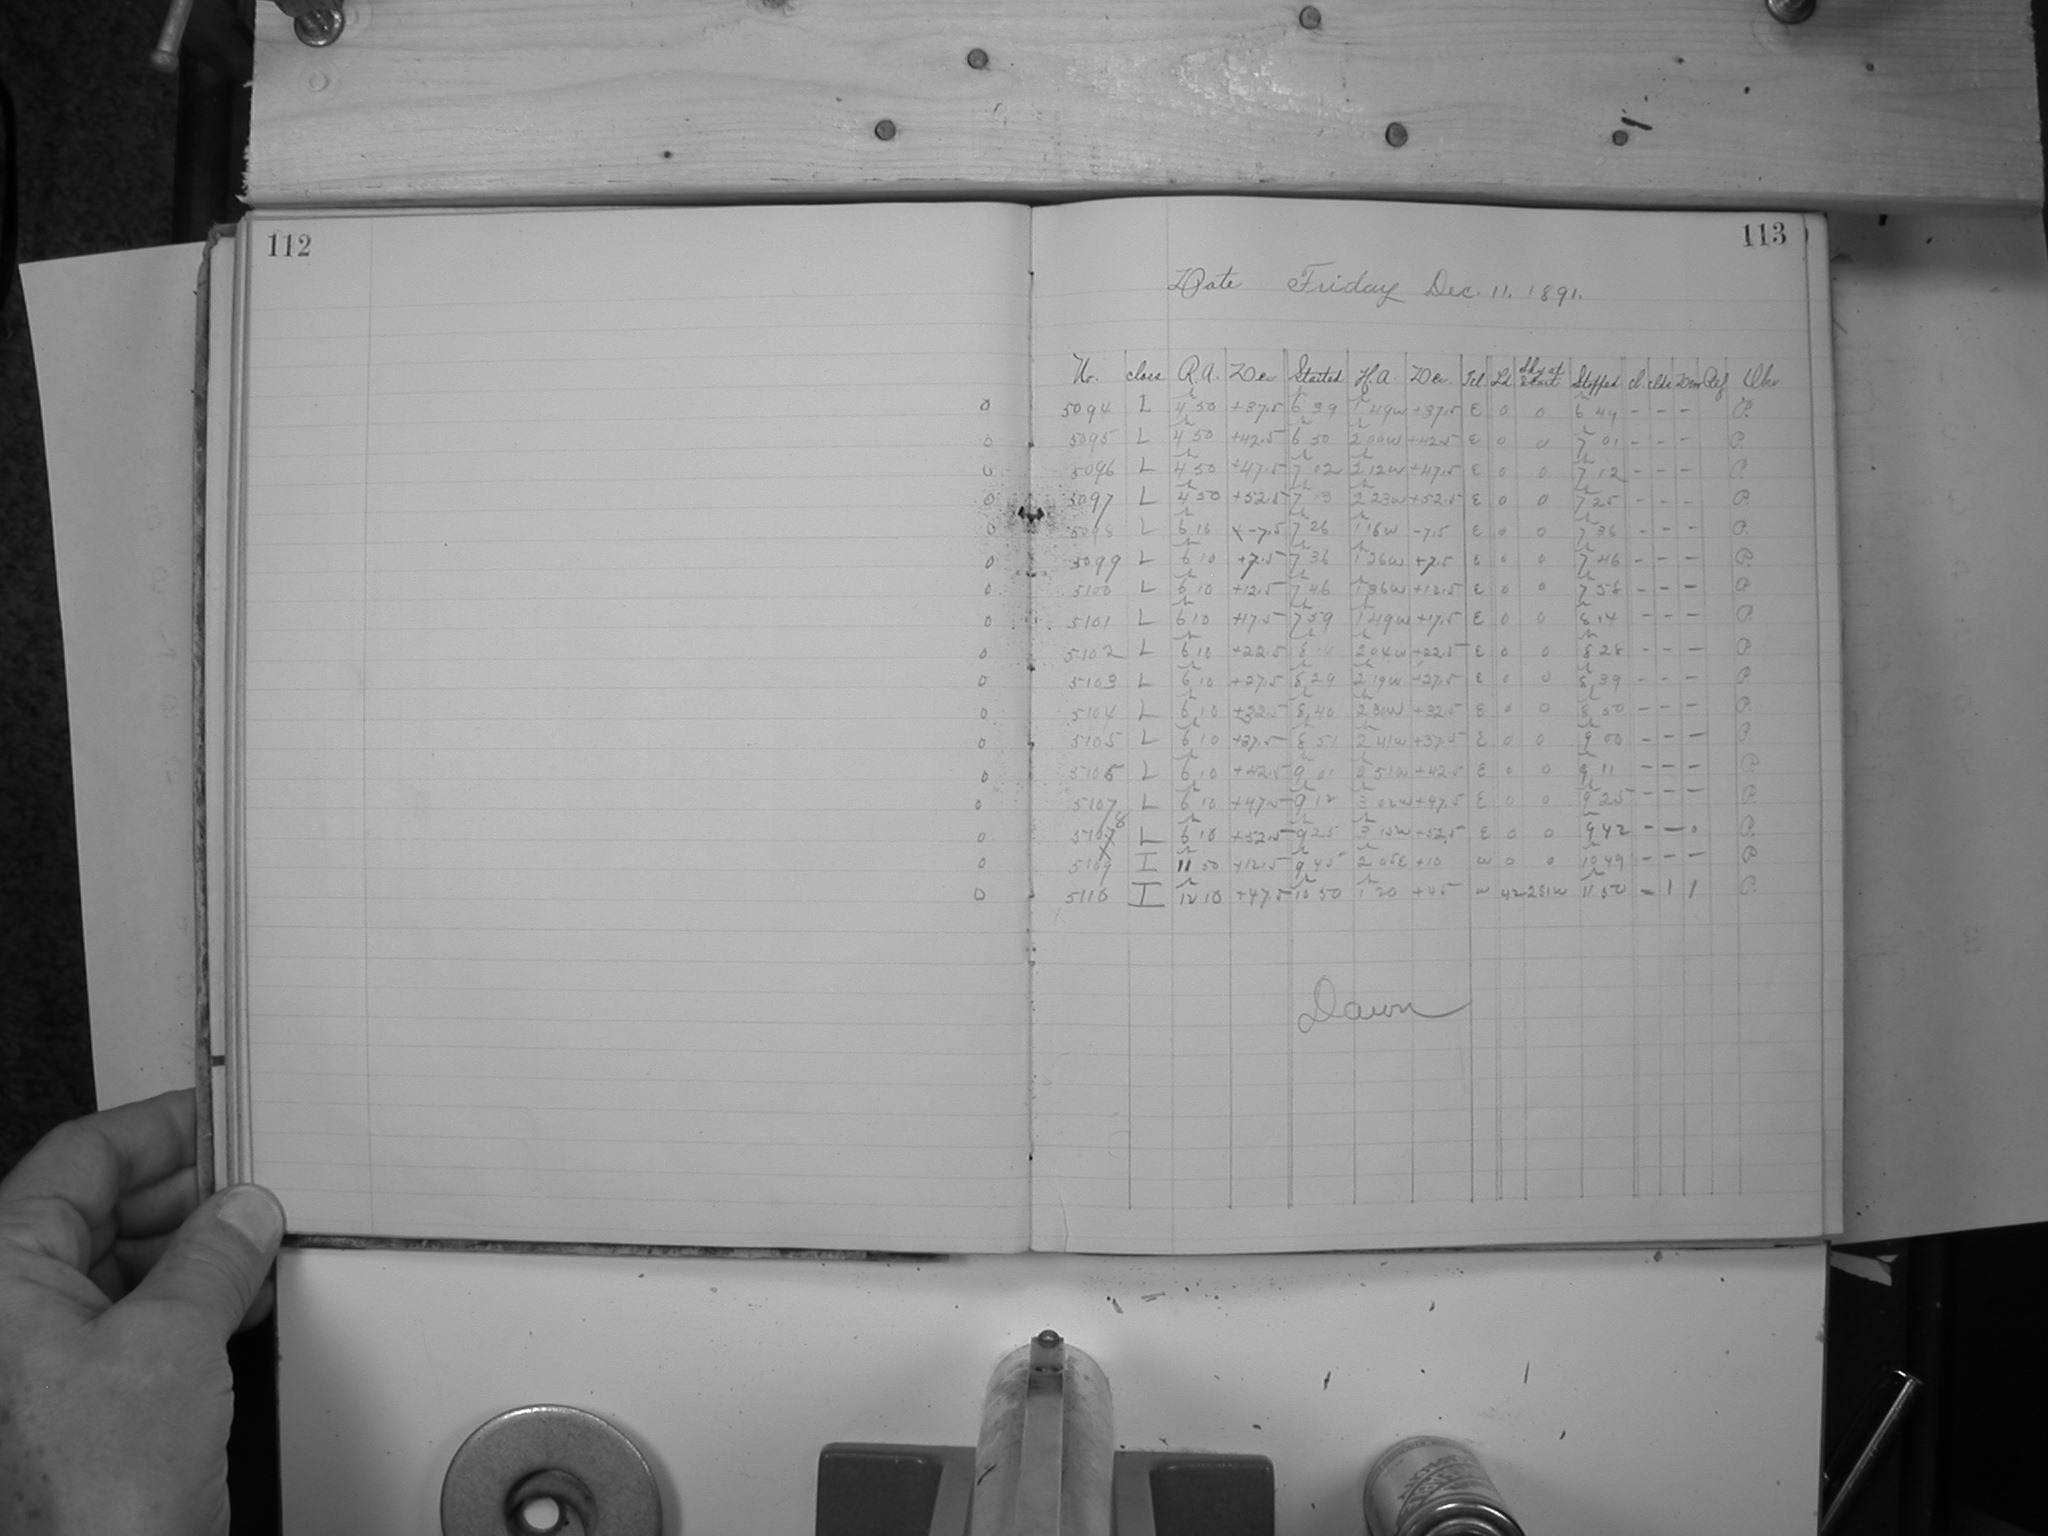 112
113
Date Friday Dec. 11. 1891.
No. class R.A. Dec Started H.A. Dec. Tel Ld Sky at Start Stopped cl clds Dew Ref Obs
0 5094 L 4 50 +37.5 6 39 1 49w +37.5 E 0 0 6 49 - - - P.
0 5095 L 4 50 +42.5 6 50 2 00w +42.5 E 0 0 7 01 - - - P.
0 5096 L 4 50 +47.5 7 02 2 12w +47.5 E 0 0 7 12 - - - P.
0 5097 L 4 50 +52.5 7 13 2 23w +52.5 E 0 0 7 25 - - - P.
0 5098 L 6 10 -7.5 7 26 1 16w -7.5 E 0 0 7 36 - - - P.
0 5099 L 6 10 +7.5 7 36 1 26w +7.5 E 0 0 7 46 - - - P.
0 5100 L 6 10 +12.5 7 46 1 36w +12.5 E 0 0 7 58 - - - P
0 5101 L 6 10 +17.5 7 59 1 49w +17.5 E 0 0 8 14 - - - P.
0 5102 L 6 10 +22.5 8 14 2 04w +22.5 E 0 0 8 28 - - - P
0 5103 L 6 10 +27.5 8 29 2 19w +27.5 E 0 0 8 39 - - - P.
0 5104 L 6 10 +32.5 8 40 2 30w +32.5 E 0 0 8 50 - - - P.
0 5105 L 6 10 +37.5 8 51 2 41w +37.5 E 0 0 9 00 - - - P
0 5106 L 6 10 +42.5 9 01 2 51w +42.5 E 0 0 9 11 - - - P.
0 5107 L 6 10 +47.5 9 12 3 02w +47.5 E 0 0 9 25 - - - P.
0 5108 L 6 10 +52.5 9 25 3 15w +52.5 E 0 0 9 42 - - 0 P.
0 5109 I 11 50 +12.5 9 45 2 05E +10 w 0 0 10 49 - - - P
0 5110 I 12 10 +47.5 10 50 1 20 +45 w 42 251w 11 50 - 1 1 P.
Dawn